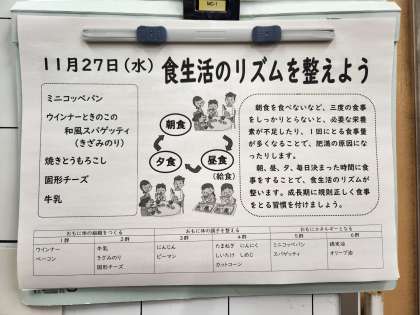 11月27日(水) 食生活のリズムを整えよう
ミニコッペパン
ウインナーときのこの
和風スパゲッティ
(きざみのり)
焼きとうもろこし
固形チーズ
牛乳
朝食
夕食
昼食
(給食)
朝食を食べないなど、三度の食事
をしっかりとらないと、必要な栄養
素が不足したり、1回にとる食事量
が多くなることで、肥満の原因にな
ったりします。
朝、昼、夕、毎日決まった時間に食
事をすることで、食生活のリズムが
整います。成長期に規則正しく食事
をとる習慣を付けましょう。
おもに体の組織をつくる おもに体の調子を整える おもにエネルギーとなる
1群 2群 3群 4群 5群 6群
ウインナー 牛乳 にんじん たまねぎ にんにく ミニコッペパン
ベーコン きざみのり ピーマン しいたけ しめじ スパゲッティ オリーブ油
固形チーズ カットコーン